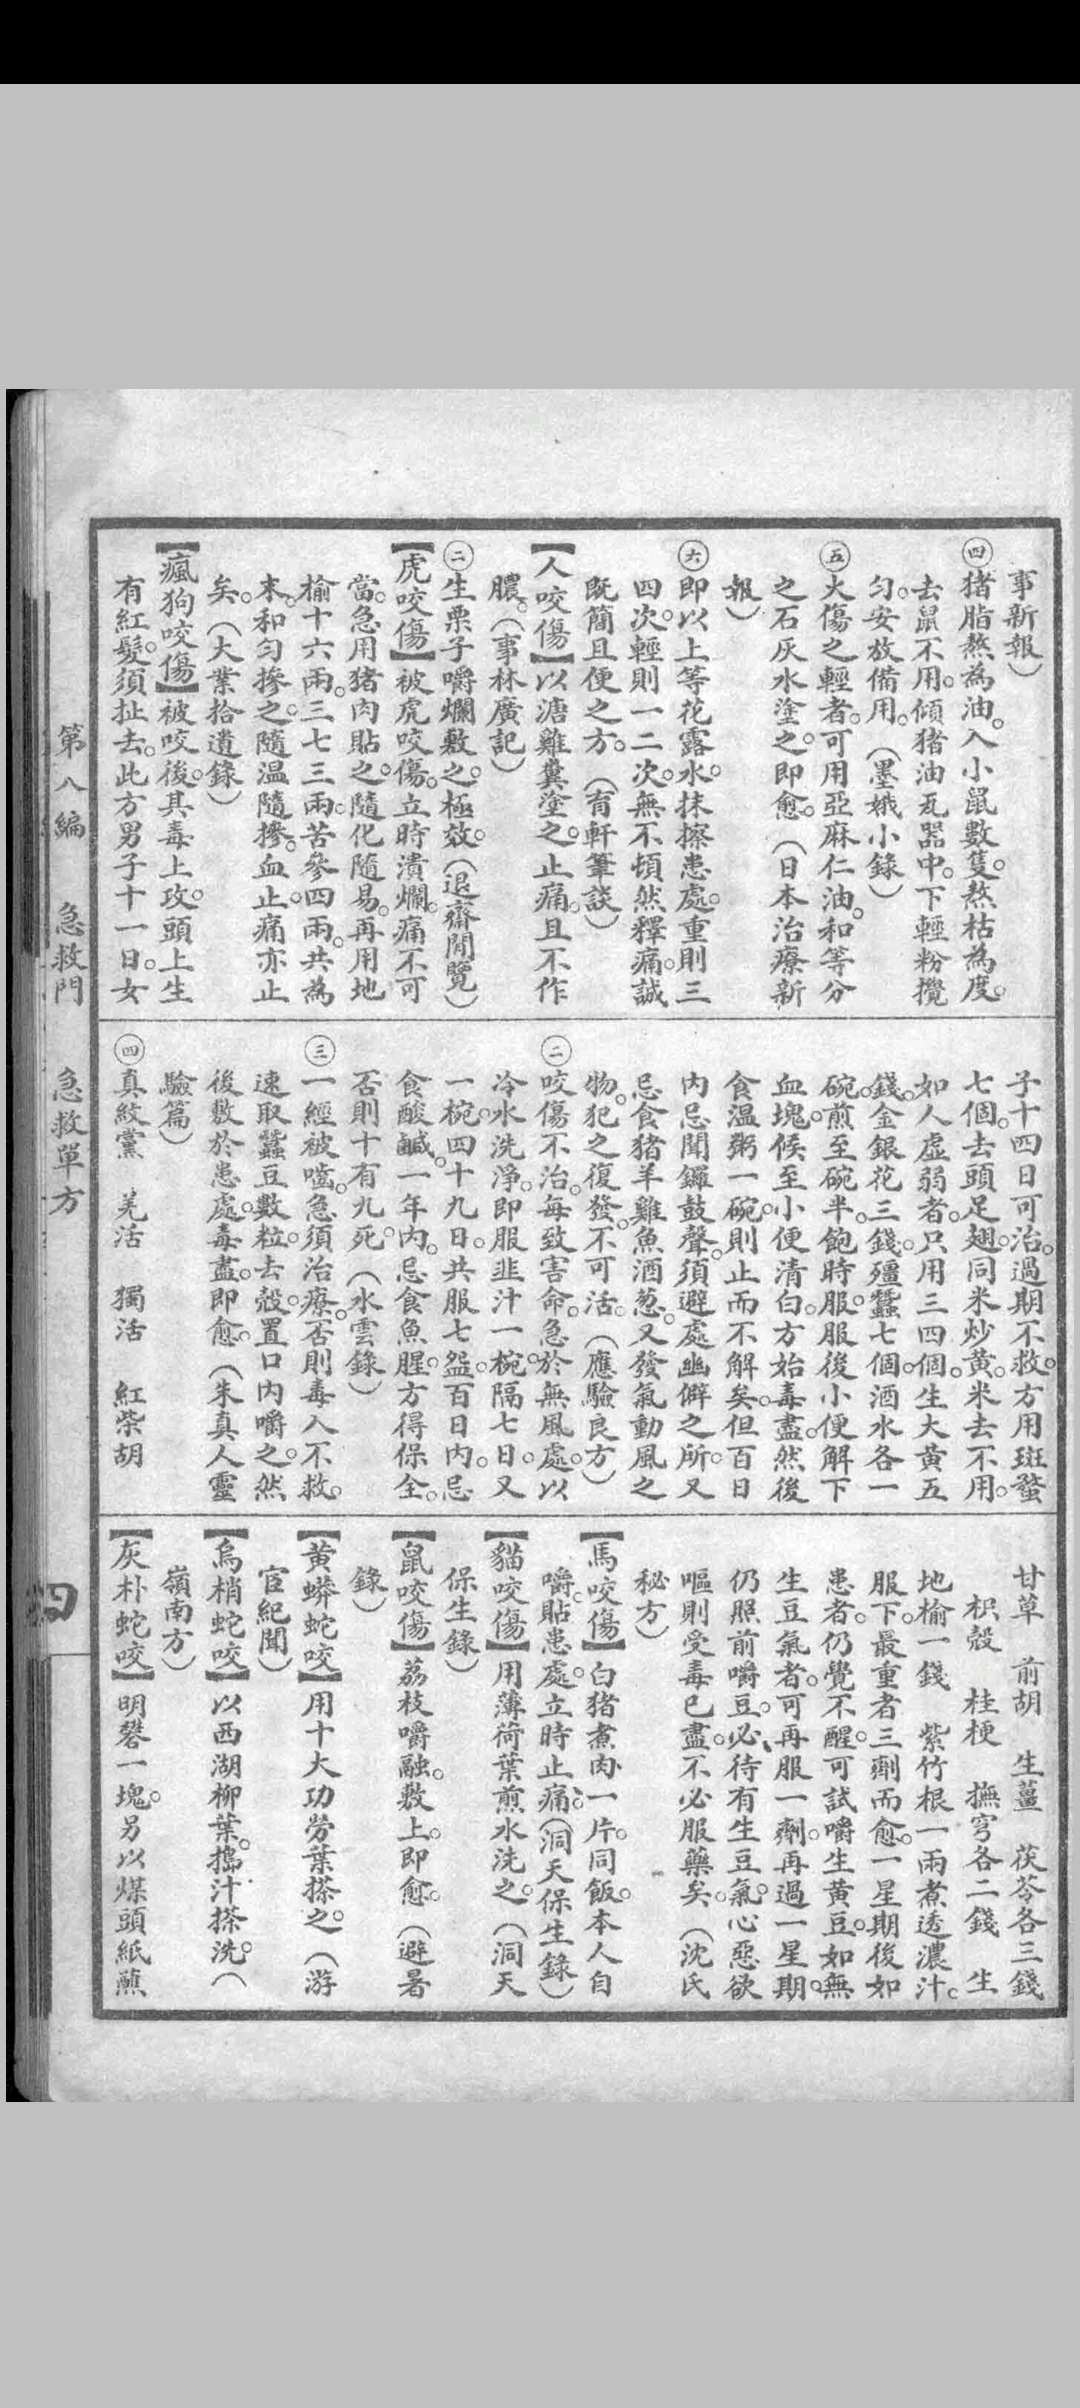 事新報）
㊃猪脂熬為油。入小鼠數隻。熬枯為度。
去鼠不用。傾猪油瓦器中。下輕粉攪
勻。安放備用。（墨娥小錄）
㊄火傷之輕者。可用亞麻仁油。和等分
之石灰水塗之。即愈。（日本治療新
報）
㊅即以上等花露水。抹擦患處。重則三
四次。輕則一二次。無不頓然釋痛。誠
既簡且便之方。（育軒筆談）
【人咬傷】以溏雞糞塗之。止痛。且不作
膿。（事林廣記）
㊁生栗子嚼爛敷之。極效。（退齋閒覽）
【虎咬傷】被虎咬傷。立時潰爛。痛不可
當。急用猪肉貼之。隨化隨易。再用地
榆十六兩。三七三兩。苦參四兩。共為
末。和勻摻之。隨溫隨摻。血止。痛亦止
矣。（大業拾遺錄）
【瘋狗咬傷】被咬後。其毒上攻。頭上生
有紅髮。須扯去。此方男子十一日。女
子十四日可治。過期不救。方用斑蝥
七個。去頭足翅。同米炒黃。米去不用。
如人虛弱者。只用三四個。生大黃五
錢。金銀花三錢。殭蠶七個。酒水各一
碗。煎至碗半。飽時服。服後小便解下
血塊。候至小便清白。方始毒盡。然後
食溫粥一碗。則止而不解矣。但百日
內忌聞鑼鼓聲。須避處幽僻之所。又
忌食猪羊雞魚酒葱。又發氣動風之
物。犯之復發。不可活。（應驗良方）
㊁咬傷不治。每致害命。急於無風處。以
冷水洗淨。即服韭汁一椀。隔七日。又
一椀。四十九日。共服七盌。百日內。忌
食酸鹹。一年內。忌食魚腥。方得保全。
否則十有九死。（水雲錄）
㊂一經被噬。急須治療。否則毒入不救。
速取蠶豆數粒。去殼。置口內嚼之。然
後敷於患處。毒盡即愈。（朱真人靈
驗篇）
㊃真紋黨　羌活　獨活　紅柴胡
甘草　前胡　生薑　茯苓各三錢
枳殼　桂梗　撫穹各二錢　生
地榆一錢　紫竹根一兩煮透濃汁。
服下。最重者三劑而愈。一星期後如
患者。仍覺不醒。可試嚼生黃豆。如無
生豆氣者。可再服一劑。再過一星期。
仍照前嚼豆。必待有生豆氣。心惡欲
嘔。則受毒已盡。不必服藥矣。（沈氏
秘方）
【馬咬傷】白猪煮肉一片。同飯。本人自
嚼。貼患處。立時止痛。（洞天保生錄）
【貓咬傷】用薄荷葉煎水洗之。（洞天
保生錄）
【鼠咬傷】荔枝嚼融。敷上。即愈。（避暑
錄）
【黃蟒蛇咬】用十大功勞葉搽之。（游
宦紀聞）
【烏梢蛇咬】以西湖柳葉。搗汁搽洗。（
嶺南方）
【灰朴蛇咬】明礬一塊。另以煤頭紙蘸
第八編　急救門　急救單方